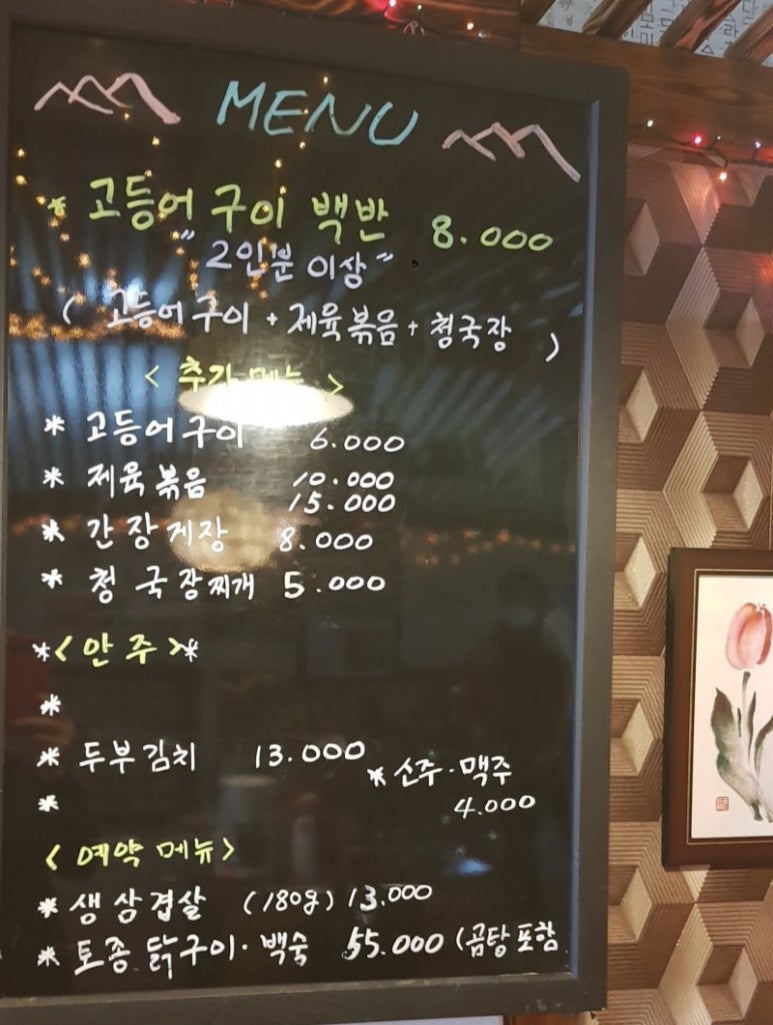 MENU
* 고등어 구이 백반 8.000
"2인분 이상"
( 고등어구이 + 제육볶음 + 청국장 )
< 추가 메뉴 >
* 고등어구이 6.000
* 제육볶음 10.000
15.000
* 간장게장 8.000
* 청국장찌개 5.000
*< 안주 >*
*
* 두부김치 13.000
* 소주·맥주
4.000
*
< 예약 메뉴 >
* 생삼겹살 (180g) 13.000
* 토종 닭구이·백숙 55.000 (곰탕 포함